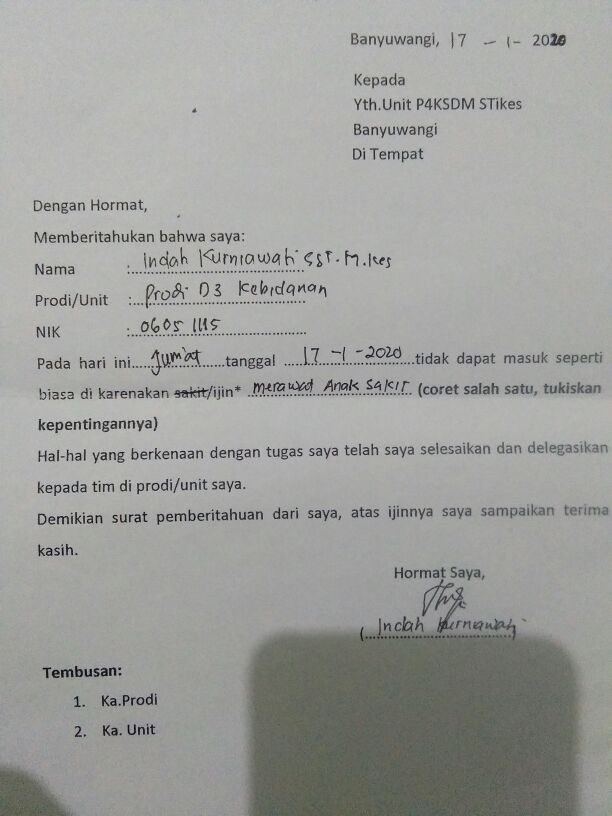 Banyuwangi, 17 - 1 - 2020
Kepada
Yth.Unit P4KSDM STikes
Banyuwangi
Di Tempat
Dengan Hormat,
Memberitahukan bahwa saya:
Nama : Indah Kurniawati SST.M.Kes
Prodi/Unit : Prodi D3 Kebidanan
NIK : 0605 1115
Pada hari ini.....Jum'at.....tanggal ...17 -1 -2020...tidak dapat masuk seperti
biasa di karenakan sakit/ijin* ..merawat Anak sakit.. (coret salah satu, tukiskan
kepentingannya)
Hal-hal yang berkenaan dengan tugas saya telah saya selesaikan dan delegasikan
kepada tim di prodi/unit saya.
Demikian surat pemberitahuan dari saya, atas ijinnya saya sampaikan terima
kasih.
Hormat Saya,
( Indah Kurniawati
Tembusan:
1. Ka.Prodi
2. Ka. Unit